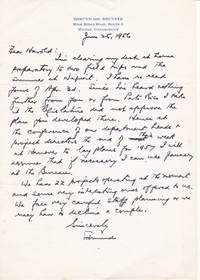 EDMUND DES. BRUNNER
High Ridge Road, Route 2
Wilton, Connecticut
June 25, 1956
Dear Harold:
I'm clearing my desk at home
preparatory to two field trips and the
summer at Newport. I have re read
yours of Apr. 3d. Since I've heard nothing
further from you or from Puerto Rico I take
it the Rico did not approve the
plan you developed there. Hence at
the conference of our department heads &
project directors to end of the week
at Hanover to lay plans for 1957 I will
assume that if necessary I can use January
at the Bureau.
We have 22 projects operating at the moment
and some very interesting ones offered to us.
We face very careful staff planning or we
may have to decline a couple.
Sincerely
Edmund